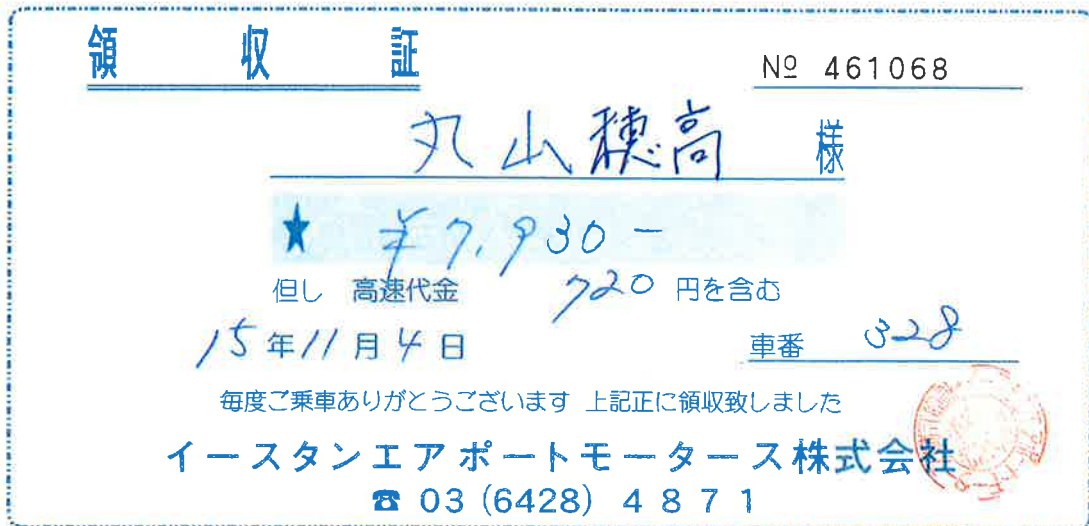 領収証
№ 461068
丸山穂高 様
★ ¥7,930-
但し 高速代金 720 円を含む
15年11月4日
車番 328
毎度ご乗車ありがとうございます 上記正に領収致しました
イースタンエアポートモータース株式会社
☎ 03 (6428) 4871